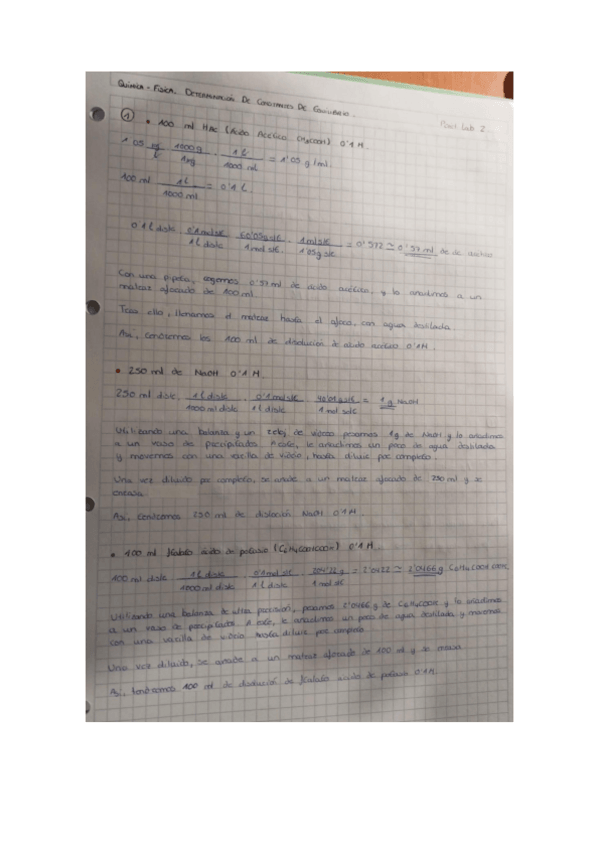 QUÍMICA - FÍSICA. DETERMINACIÓN DE CONSTANTES DE EQUILIBRIO.
Post lab 2
① • 100 ml HAc (Ácido Acético CH₃COOH) 0'1 M.
1'05 kg/l · 1000 g / 1 kg · 1 l / 1000 ml = 1'05 g/ml.
100 ml · 1 l / 1000 ml = 0'1 l.
0'1 l dislc · 0'1 mol slc / 1 l dislc · 60'05 g slc / 1 mol slc · 1 ml slc / 1'05 g slc = 0'572 ≃ 0'57 ml Ac de acético
Con una pipeta, cogemos 0'57 ml de ácido acético, y lo añadimos a un
matraz aforado de 100 ml.
Tras ello, llenamos el matraz hasta el aforo, con agua destilada.
Así, tendremos los 100 ml de disolución de ácido acético 0'1M.
• 250 ml de NaOH 0'1 M.
250 ml dislc · 1 l dislc / 1000 ml dislc · 0'1 mol slc / 1 l dislc · 40'01 g slc / 1 mol slc = 1 g NaOH
Utilizando una balanza y un reloj de vidrio pesamos 1g de NaOH y lo añadimos
a un vaso de precipitados. A este, le añadimos un poco de agua destilada
y movemos con una varilla de vidrio, hasta diluir por completo.
Una vez diluido por completo, se añade a un matraz aforado de 250 ml y se
enrasa.
Así, tendremos 250 ml de disolución NaOH 0'1M.
• 100 ml ftalato ácido de potasio (C₆H₄COOHCOOK) 0'1 M.
100 ml dislc · 1 l dislc / 1000 ml dislc · 0'1 mol slc / 1 l dislc · 204'22 g / 1 mol slc = 2'0422 ≃ 2'0466 g C₆H₄COOH
Utilizando una balanza de alta precisión, pesamos 2'0466 g de C₆H₄COOK y lo añadimos
a un vaso de precipitados. A este, le añadimos un poco de agua destilada y movemos
con una varilla de vidrio hasta diluir por completo.
Una vez diluido, se añade a un matraz aforado de 100 ml y se enrasa.
Así, tendremos 100 ml de disolución de ftalato ácido de potasio 0'1M.